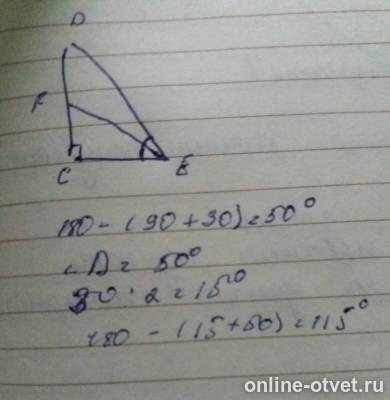 D
F
C
E
180 - (90 + 30) = 50°
∠D = 50°
30 : 2 = 15°
180 - (15 + 50) = 115°
online-otvet.ru